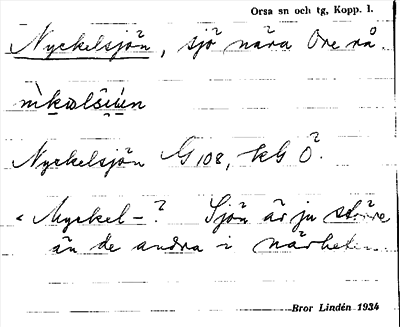 Orsa sn och tg, Kopp. l.
Nyckelsjön, sjö nära Oreså
Nyckelsjön G 108, kG Ö.
« Myckel-? Sjön är ju större
än de andra i närheten
Bror Lindén 1934